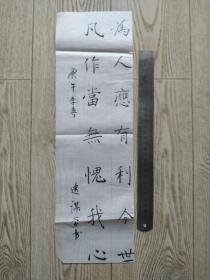 為人應有利今世
凡作當無愧我心
庚午季春